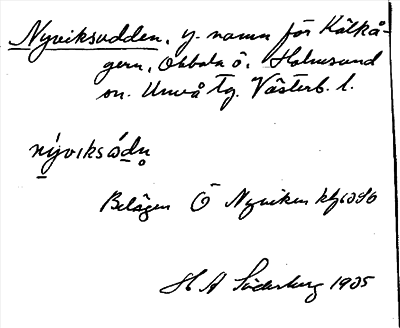 Nyviksudden, y. namn för Kälkå-
gern, Obbola ö, Holmsund
sn. Umeå Tg. Västerb. l.
nýviksúdn̥
Belägen Ö Nyviken
H A Söderberg 1935